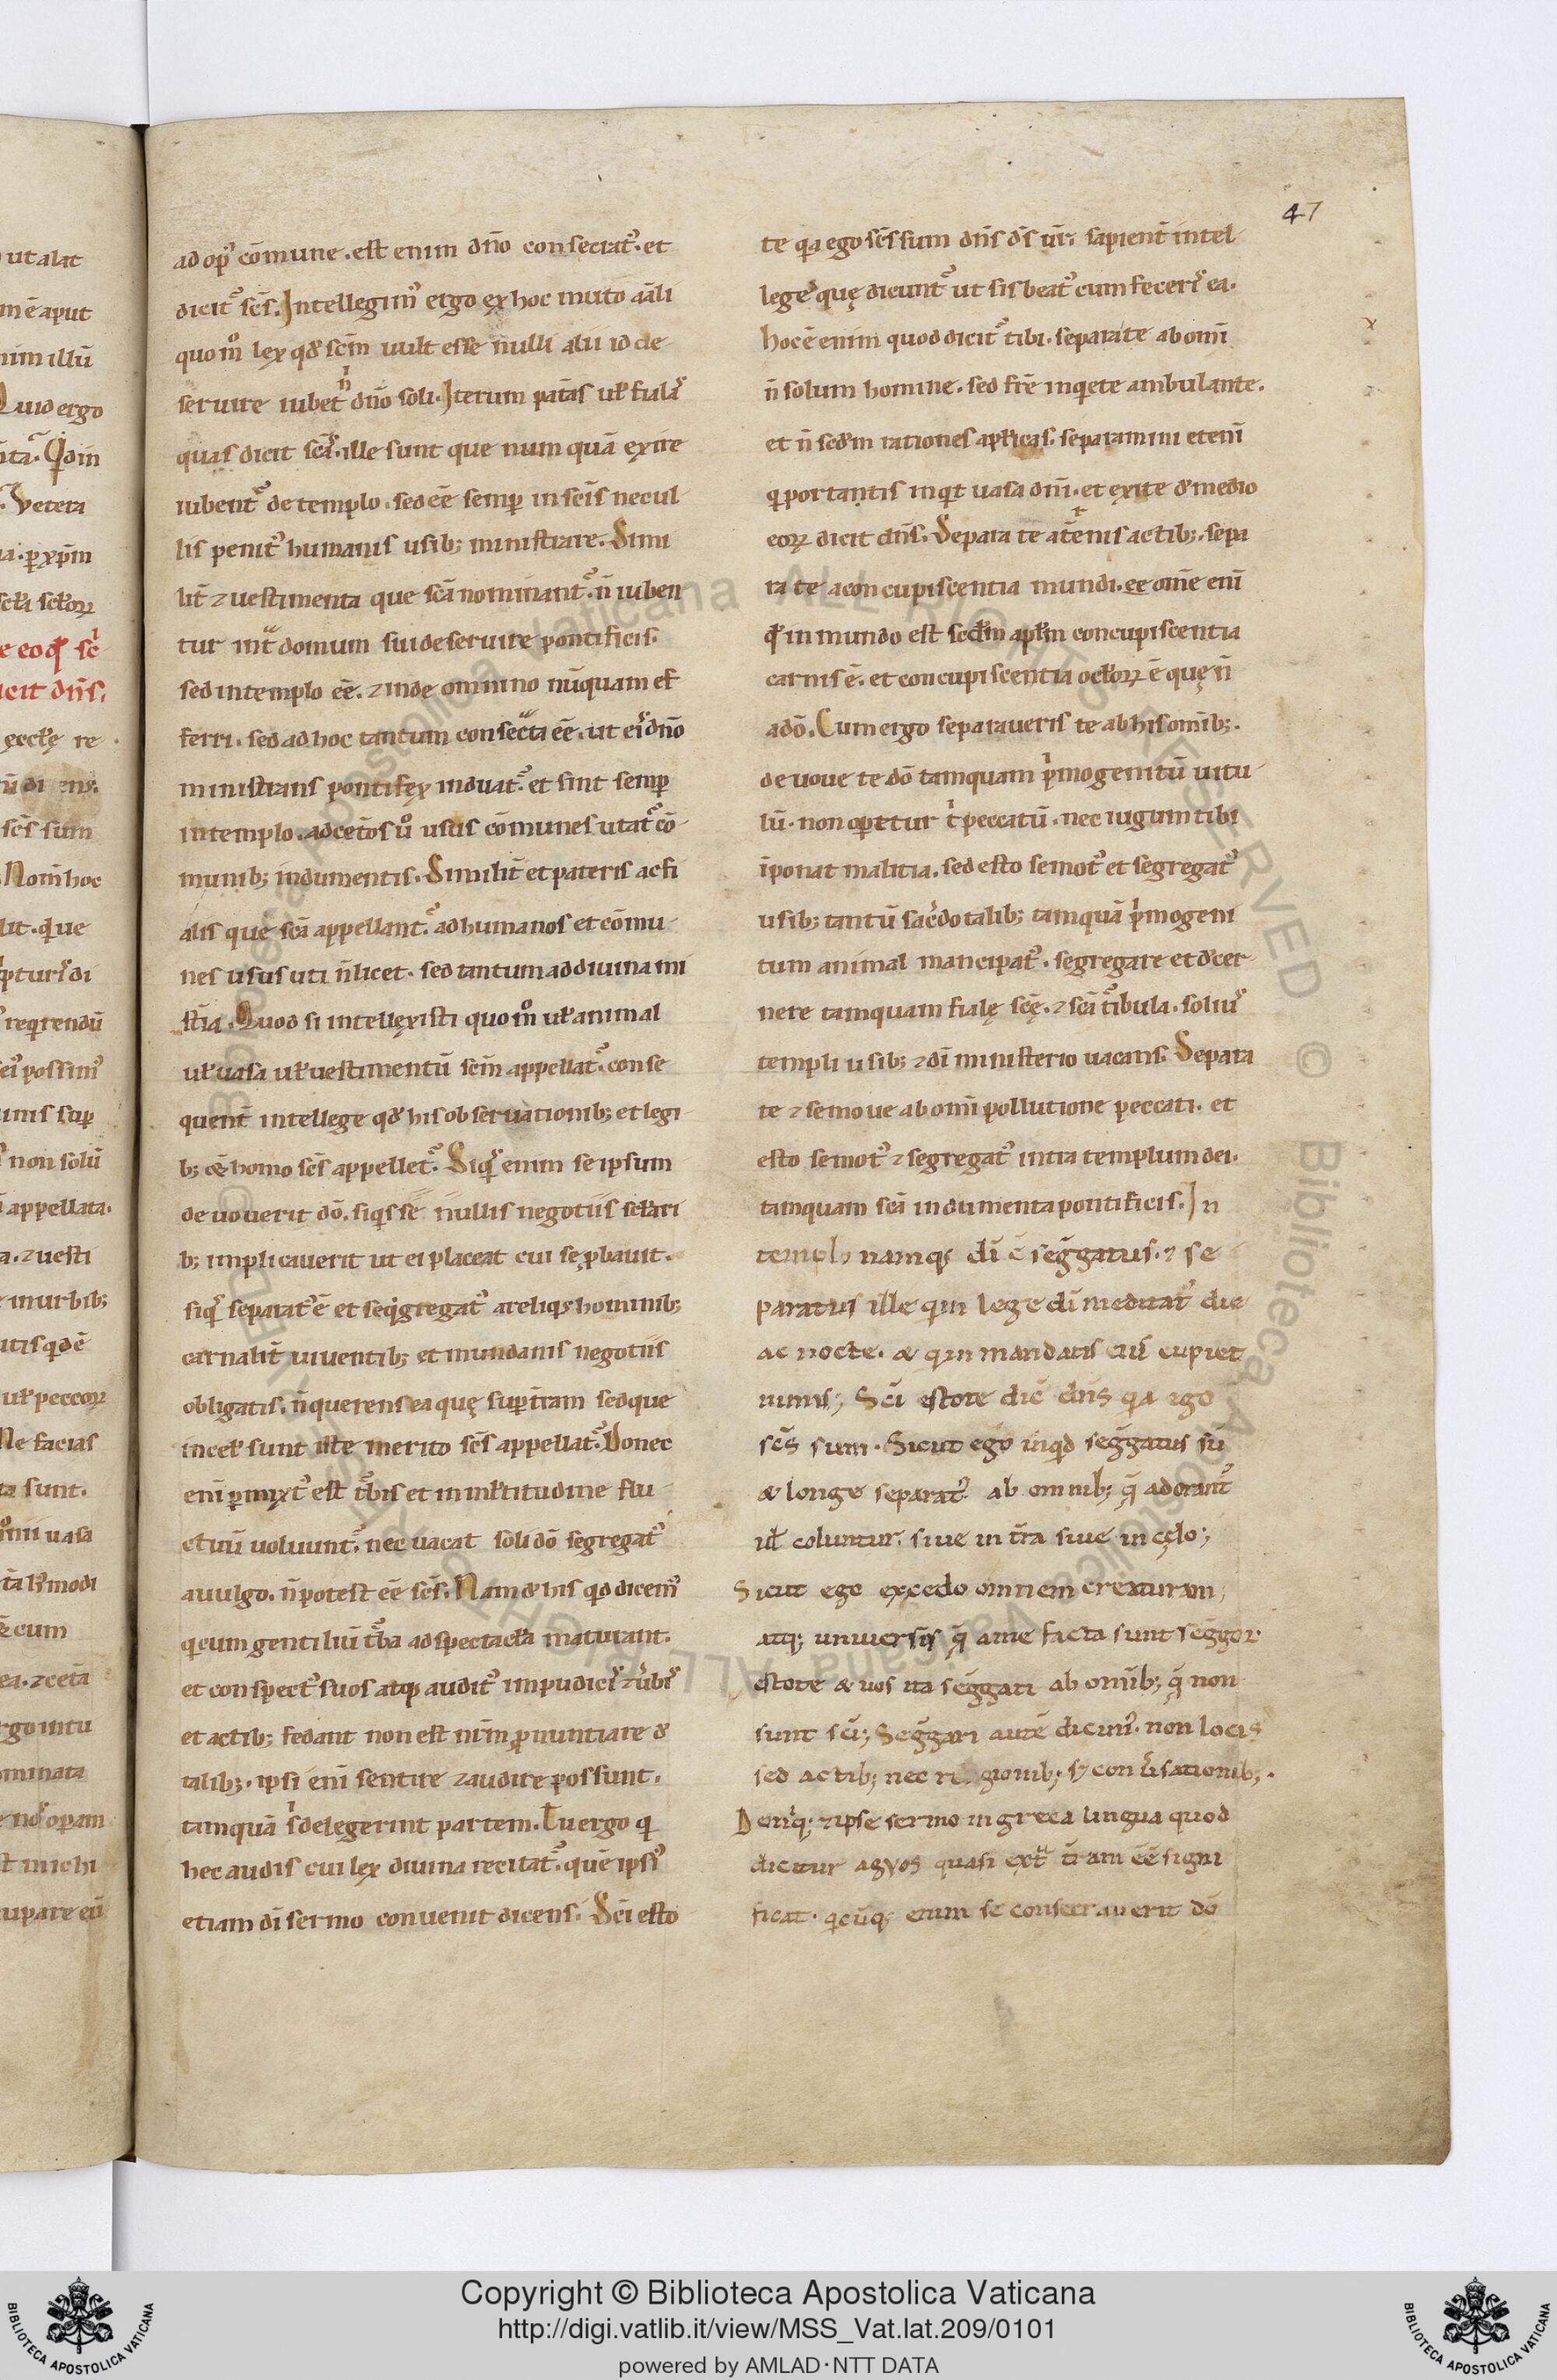 47
ad op᷒ cōmune. est enim dn̄o consecrat᷒. et
dicit᷑ scs̄. Intellegim᷒ ergo ex hoc muto aīali
quom̊ lex qd̓ scm̄ uult esse nulli alii id de
seruire iubet n̄ dn̄o soli. Iterum pat̄as uł fialas
quas dicit scās. ille sunt que numquā exire
iubent᷑ de templo. sed eē semꝑ in scīs nec ul
lis penit᷒ humanis usib; ministrare. Simi
lit̄ ⁊ uestimenta que scā nominant᷑. n̄ iuben
tur int̄ domum sui deseruire pontificis.
sed in templo eē. ⁊ inde omnino nūquam ef
ferri. sed ad hoc tantum consecͣta eē. ut eis dn̄o
ministrans pontifex induat᷑. et sint semꝑ
in templo. ad cet̄os ů usus cōmunes utat᷑ cō
munib; indumentis. Similit̄ et pateris ac fi
alis que scā appellant᷑. ad humanos et cōmu
nes usus uti n̄ licet. sed tantum ad diuina mi
nist̄ia. Quod si intellexisti quom̊ uł animal
uł uasa uł uestimentū scm̄ appellat᷑. conse
quent̄ intellege qd̓ his obseruationib; et legi
b; eē homo scs̄ appellet᷑. Siqͥs enim se ipsum
deuouerit dō. siqͥs se nullis negotiis sclari
b; implicauerit ut ei placeat cui se ꝓbauit.
siqͥs separat᷒ ē et segregat᷒ a reliqͥs hominib;
carnalit̄ uiuentib; et mundanis negotiis
obligatis. n̄ querens ea quę suꝑ t̄ram sed que
in cel̓ sunt iste merito scs̄ appellat᷑. Donec
enī ꝑmixt᷒ est t᷒bis et in mltitudine flu
ctuū uoluunt᷑. nec uacat soli dō segregat᷒
a uulgo. n̄ potest eē scs̄. Nam de his qͥd dicem᷒
qͥ cum gentiliū t᷒ba ad spectacła maturant.
et conspect᷒ suos atqꝫ audit᷒ impudicis ⁊ ūbis
et actib; fedant non est nr̄m ꝓnuntiare de
talib;. ipsi enī sentire ⁊ audire possunt.
tamquā s delegerint partem. Tu ergo qͥ
hec audis cui lex diuina recitat᷑. quē ipsi᷒
etiam dī sermo conuenit dicens. Scī esto
te qͥa ego scs̄ sum dn̄s ds̄ ur̄. sapient̄ intel
lege quę dicunt᷑ ut sis beat᷒ cum feceris ea.
hoc ē enim quod dicit᷑ tibi. separa te ab om̄i
n̄ solum homine. sed fr̄e inqͥete ambulante.
et n̄ scd̄m rationes apłicas. separamini etenī
qͥ portantis inqͥt uasa dn̄i. et exite de medio
eoꝝ dicit dn̄s. Separa te a t̄renis actib;. sepa
ra te a concupiscentia mundi. om̄e enī
qd̓ in mundo est scd̄m apłm concupiscentia
carnis ē. et concupiscentia ocłoꝝ ē quę n̄
a dō. Cum ergo separaueris te ab his om̄ib;.
deuoue te dō tamquam pͥmogenitū uitu
lū. non opetur t̄ peccatū. nec iugum tibi
īponat malitia. sed esto semot᷒ et segregat᷒
usib; tantū sac̄dotalib; tamquā pͥmogeni
tum animal mancipat᷒. segregare et decer
nere tamquam fialę scę̄. ⁊ scā t᷒ibula. soli᷒
templi usib; ⁊ dī ministerio uacans. Separa
te ⁊ semoue ab om̄i pollutione peccati. et
esto semot᷒ ⁊ segregat᷒ intra templum dei.
tamquam scā indumenta pontificis. In
templo namqꝫ dī ē seḡgatus. ⁊ se
paratus ille qͥ in lege dī meditat᷑ die
ac nocte. & qͥ in mandatis eiū cupiet
nimis; Scī estote dic̄ dn̄s qͥa ego
scs̄ sum. Sicut ego inqͥd seḡgatus sū
& longe separat᷒. ab omnib; q̄ adorant᷑
uł coluntur. siue in t̄ra siue in cęlo;
Sicut ego excedo omnem creaturam,
atqꝫ uniuersis q̄ a me facta sunt seḡgor
estote & uos ita seḡgati ab om̄ib; q̄ non
sunt scī; Seḡgari autē dicim᷒. non locis
sed actib; nec regionib; sꝫ conūsationib;.
Deniqꝫ ⁊ ipse sermo in greca lingua quod
dicitur agyos quasi ext̄ t̄ram eē signi
ficat. qͥcūqꝫ enim se consecrauerit dō
Copyright © Biblioteca Apostolica Vaticana
http://digi.vatlib.it/view/MSS_Vat.lat.209/0101
powered by AMLAD·NTT DATA
BIBLIOTECA APOSTOLICA VATICANA
BIBLIOTECA APOSTOLICA VATICANA